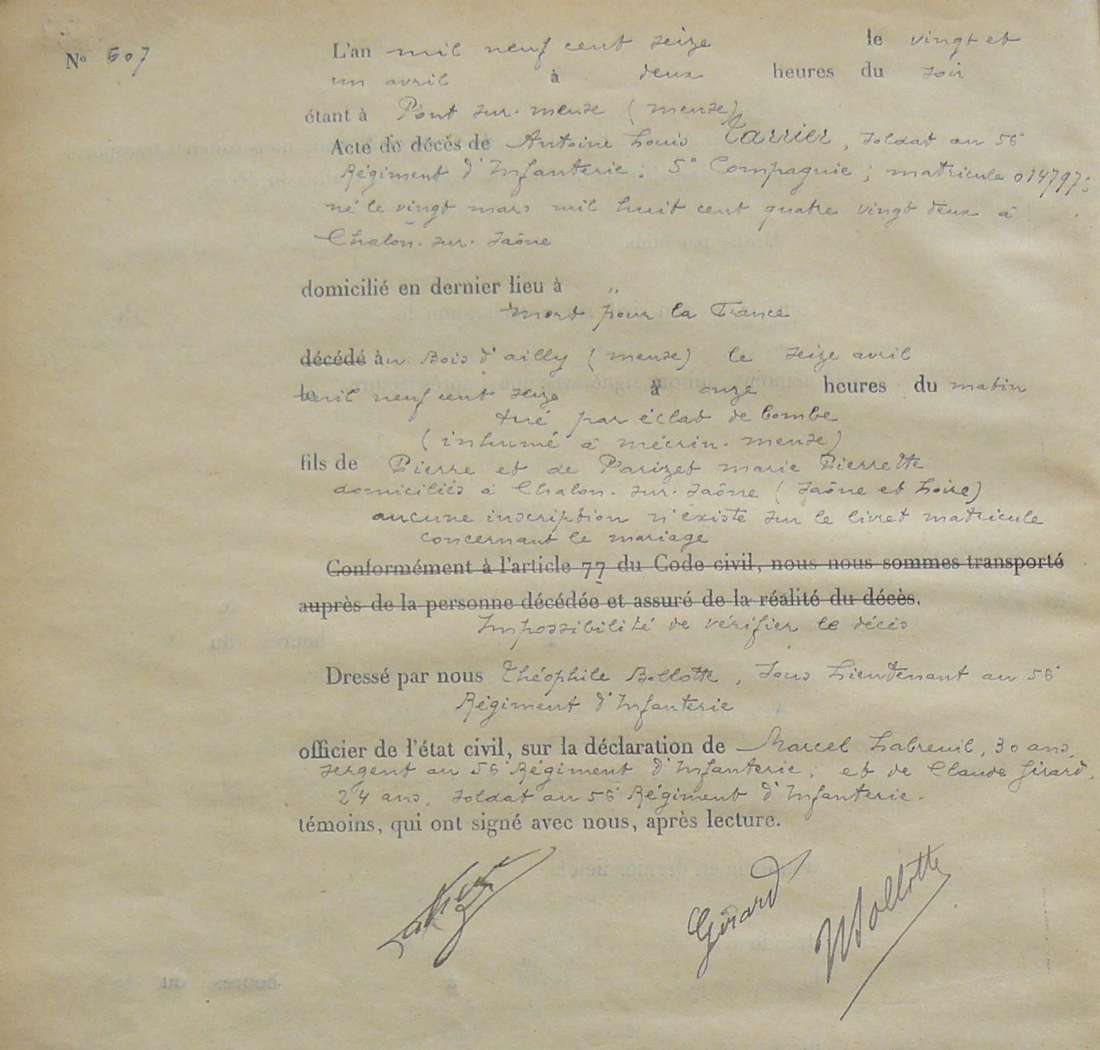 No 507
L'an mil neuf cent seize le vingt et
un avril à deux heures du soir
étant à Pont sur-meuse (meuse)
Acte de décès de Antoine Louis Tarrier, soldat au 56e
Régiment d'Infanterie. 5e Compagnie; matricule 014797;
né le vingt mars mil huit cent quatre vingt deux à
Chalon-sur-Saône
domicilié en dernier lieu à „
mort pour la France
décédé à au Bois d'ailly (meuse) le seize avril
le mil neuf cent seize à onze heures du matin
tué par éclat de bombe
(inhumé à mécrin-meuse)
fils de Pierre et de Parizet marie Pierrette
domiciliés à Chalon-sur-Saône (Saône et Loire)
aucune inscription n'existe sur le livret matricule
concernant le mariage
Conformément à l'article 77 du Code civil, nous nous sommes transporté
auprès de la personne décédée et assuré de la réalité du décès.
Impossibilité de vérifier le décès
Dressé par nous Théophile Bollotte, Sous Lieutenant au 56e
Régiment d'Infanterie
officier de l'état civil, sur la déclaration de Marcel Labreuil, 30 ans,
sergent au 56e Régiment d'Infanterie; et de Claude Girard,
24 ans, soldat au 56e Régiment d'Infanterie.
témoins, qui ont signé avec nous, après lecture.
Girard Bollotte